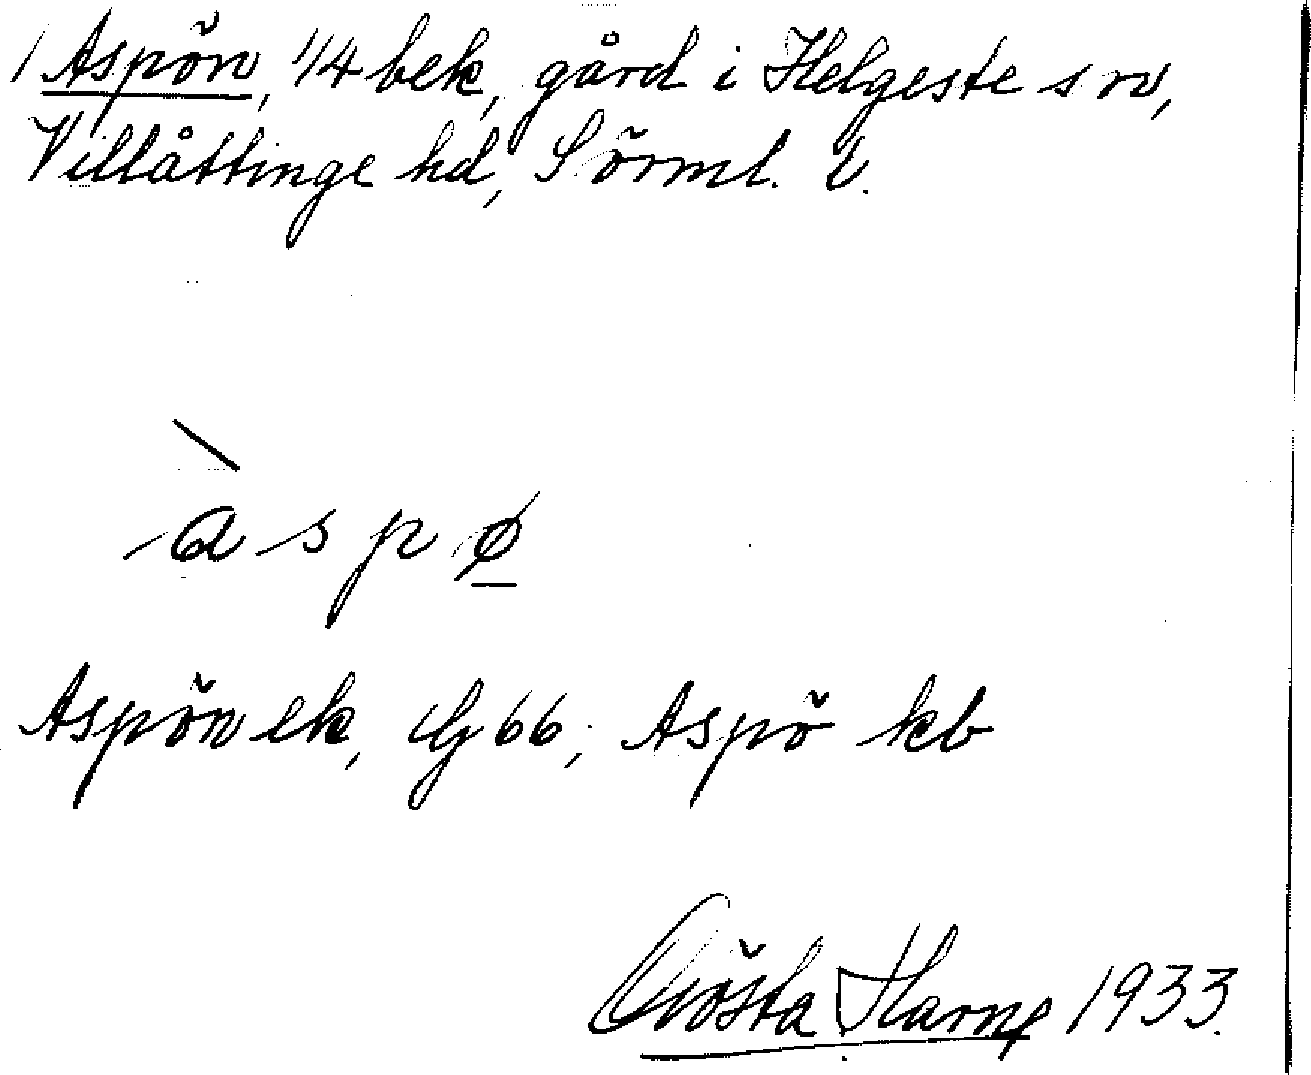 Aspön, 1/4 bek, gård i Helgesta sn,
Villåttinge hd, Sörml. l.
àspø
Aspön ek, G 66; Aspö kb
Gösta Harne 1933.